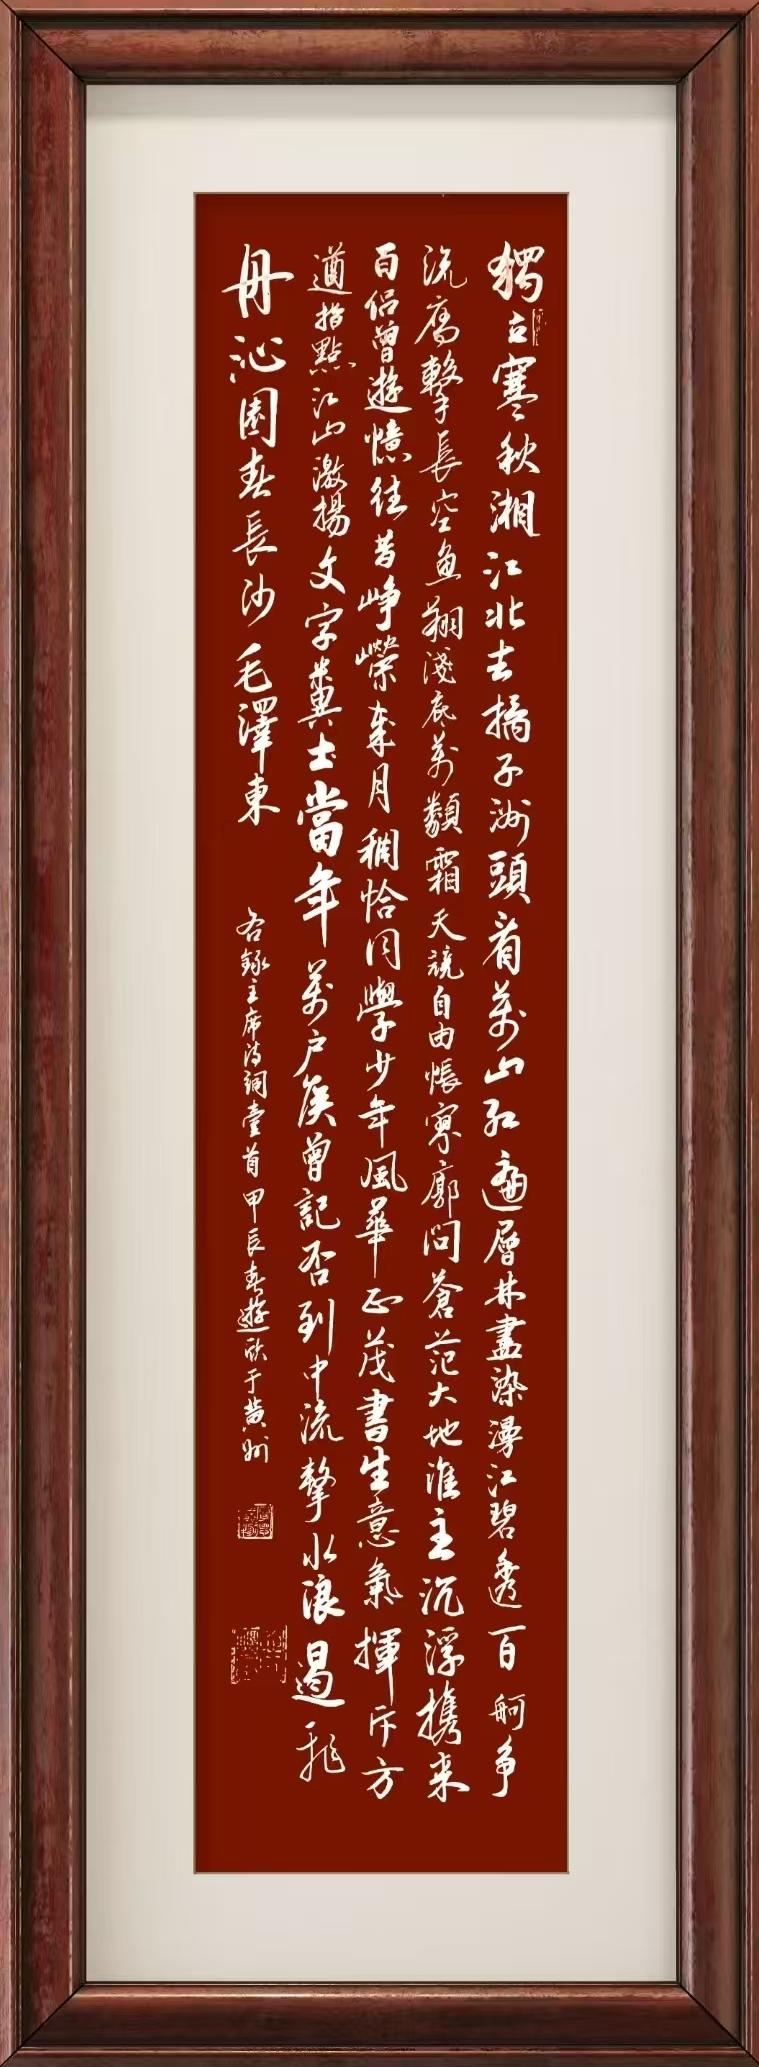 獨立寒秋湘江北去橘子洲頭看萬山紅遍層林盡染漫江碧透百舸争
流鷹擊長空魚翔淺底萬類霜天競自由悵寥廓問蒼茫大地誰主沉浮携来
百侣曾遊憶往昔峥嶸歲月稠恰同學少年風華正茂書生意氣揮斥方
遒指點江山激揚文字糞土當年萬户侯曾記否到中流擊水浪遏飛
舟沁園春長沙毛澤東
右録主席诗詞壹首甲辰春遊于黄州